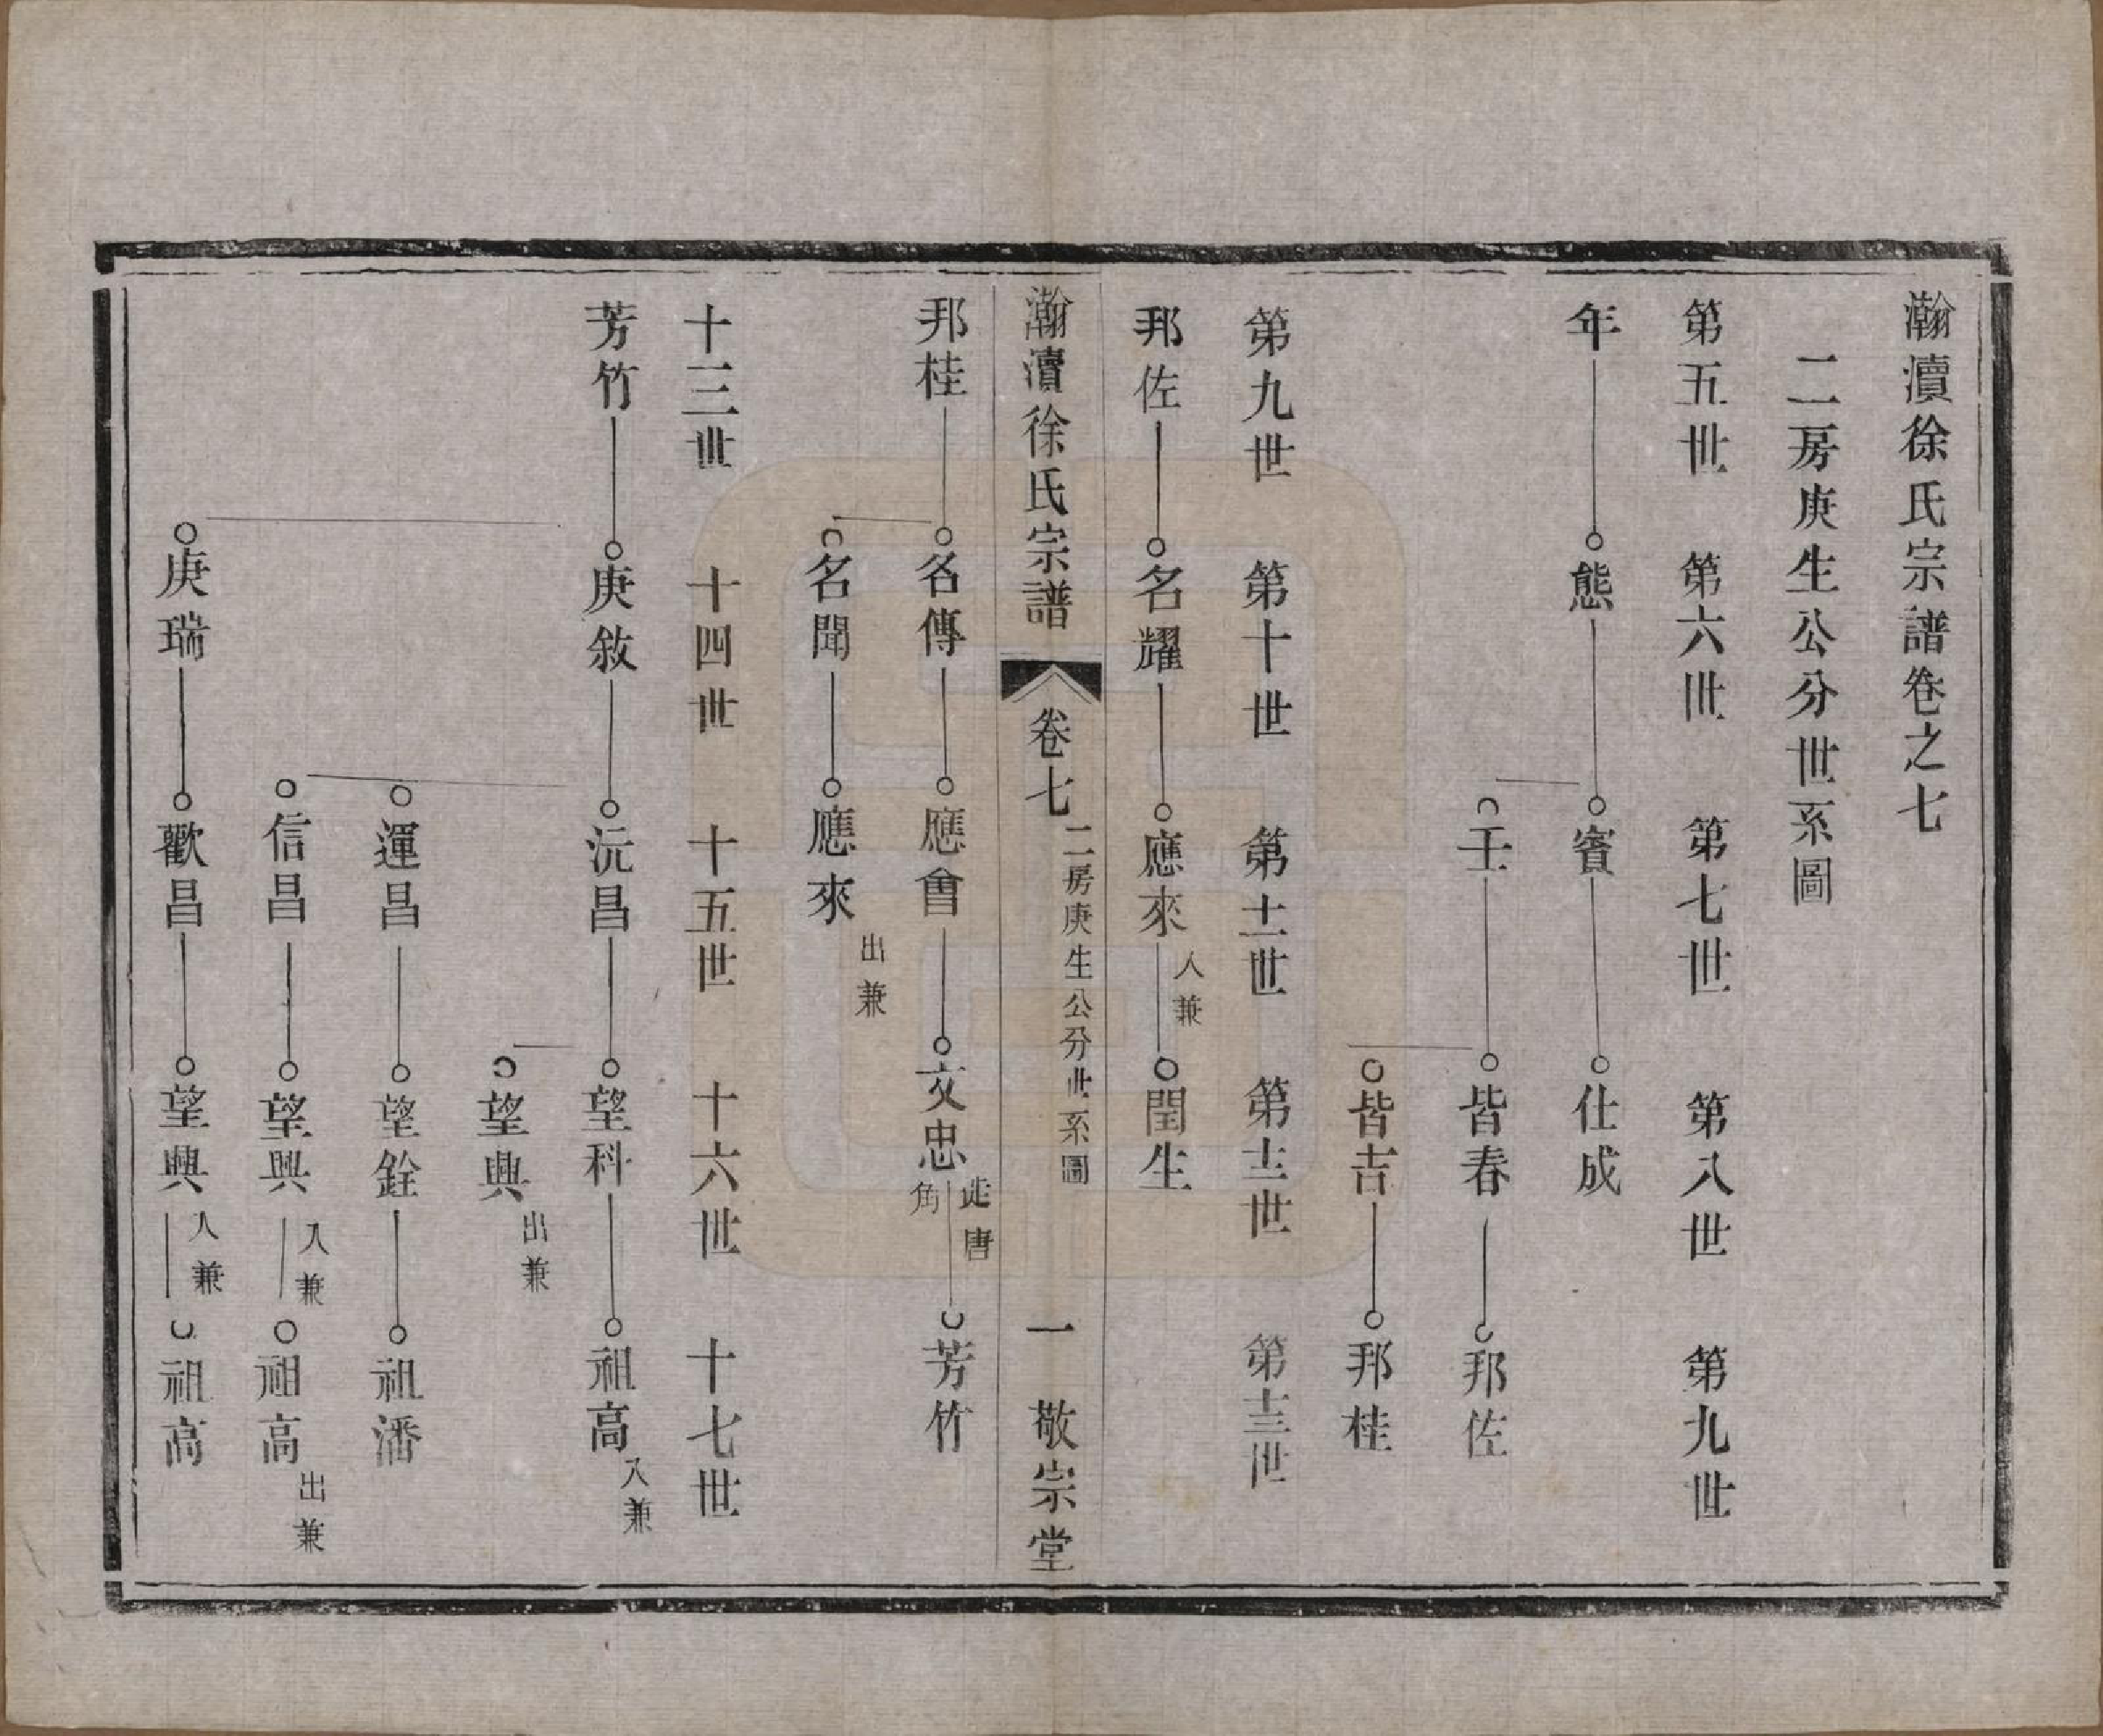 瀚瀆徐氏宗譜卷之七
二房庚生公分世系圖
第五世 第六世 第七世 第八世 第九世
年 態 賓 仕成
壬 皆春 邦佐
皆吉 邦桂
第九世 第十世 第十一世 第十二世 第十三世
邦佐 名耀 應來 入兼 閏生
瀚瀆徐氏宗譜 卷七 二房庚生公分世系圖 一 敬宗堂
邦桂 名傳 應會 文忠 走唐角 芳竹
名聞 應來 出兼
十三世 十四世 十五世 十六世 十七世
芳竹 庚敘 沅昌 望科 祖高 入兼
望興 出兼
運昌 望銓 祖潘
信昌 望興 入兼 祖高 出兼
庚瑞 歡昌 望興 入兼 祖高